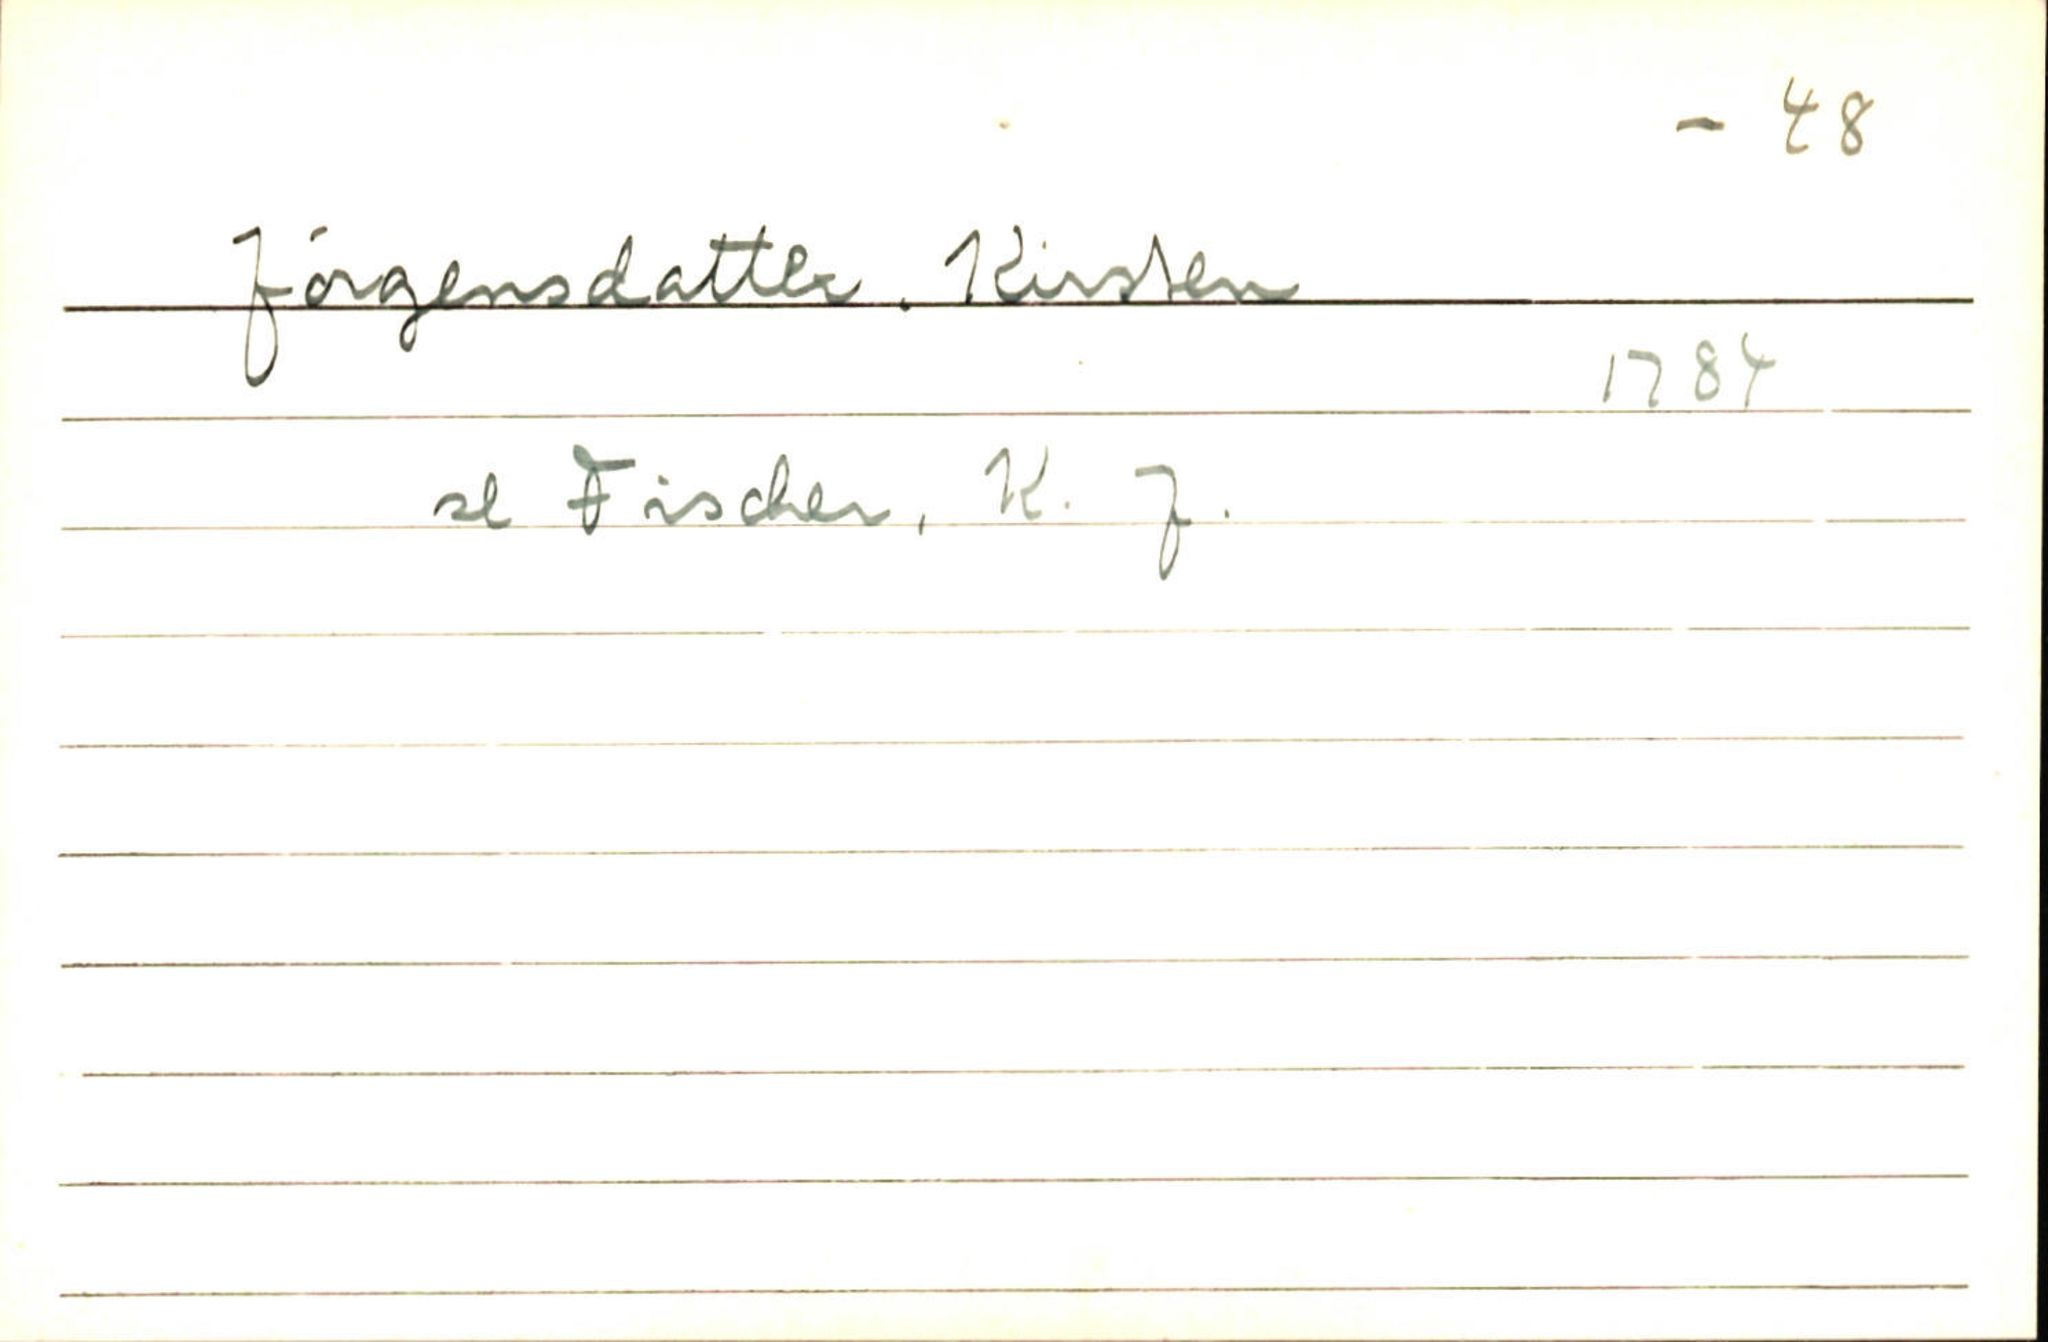 - 48
Jórgensdatter, Kirsten
1784
se Fischer, K. J.